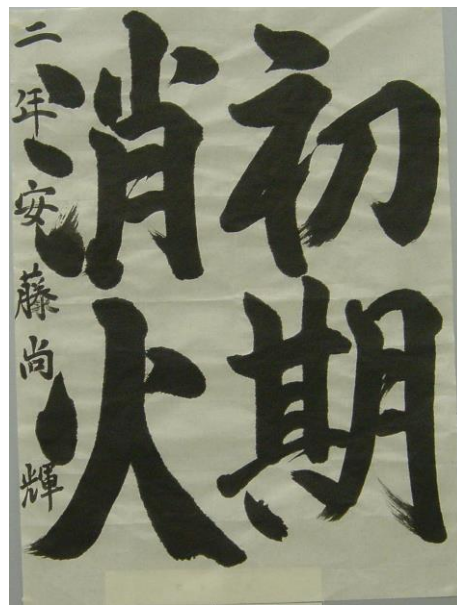 初期
消火
二年安藤尚輝